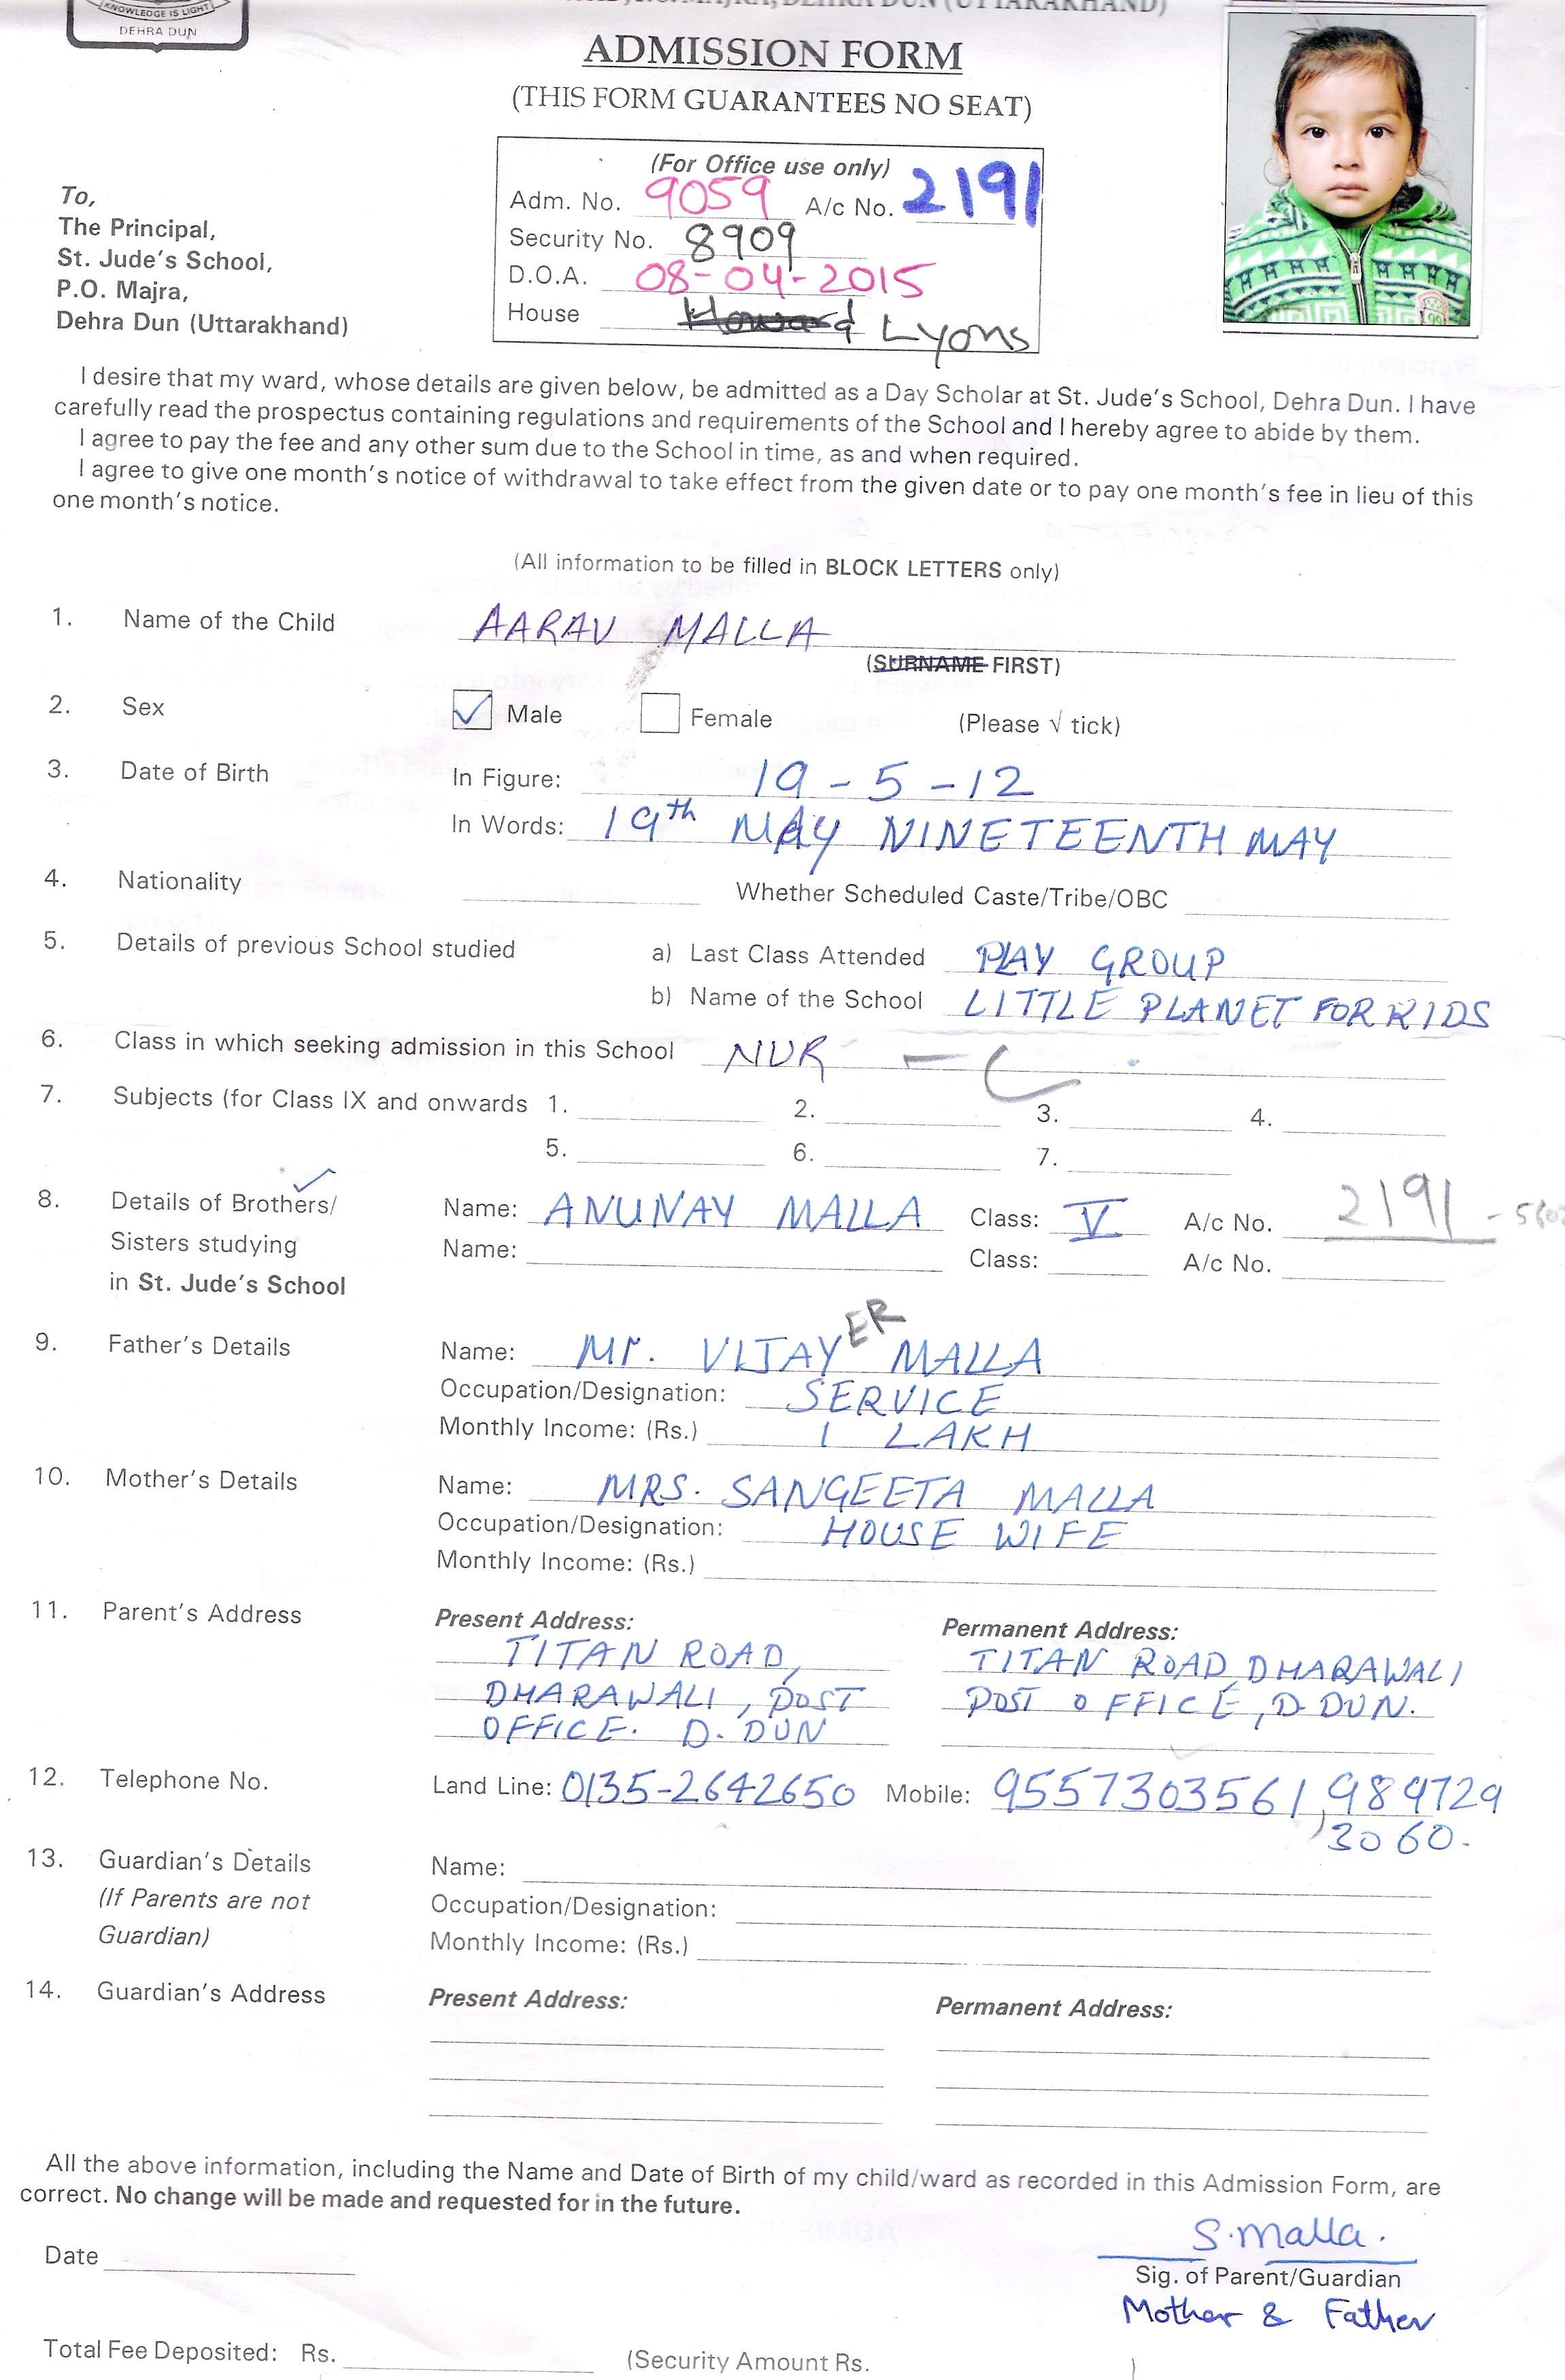 KNOWLEDGE IS LIGHT
DEHRA DUN
MAJRA, DEHRA DUN (UTTARAKHAND)
ADMISSION FORM
(THIS FORM GUARANTEES NO SEAT)
(For Office use only)
Adm. No. 9059 A/c No. 2191
Security No. 8909
D.O.A. 08-04-2015
House Howard Lyons
To,
The Principal,
St. Jude's School,
P.O. Majra,
Dehra Dun (Uttarakhand)
I desire that my ward, whose details are given below, be admitted as a Day Scholar at St. Jude's School, Dehra Dun. I have
carefully read the prospectus containing regulations and requirements of the School and I hereby agree to abide by them.
I agree to pay the fee and any other sum due to the School in time, as and when required.
I agree to give one month's notice of withdrawal to take effect from the given date or to pay one month's fee in lieu of this
one month's notice.
(All information to be filled in BLOCK LETTERS only)
1. Name of the Child AARAV MALLA
(SURNAME FIRST)
2. Sex ✓ Male Female (Please √ tick)
3. Date of Birth In Figure: 19-5-12
In Words: 19th MAY NINETEENTH MAY
4. Nationality Whether Scheduled Caste/Tribe/OBC
5. Details of previous School studied a) Last Class Attended PLAY GROUP
b) Name of the School LITTLE PLANET FOR KIDS
6. Class in which seeking admission in this School NUR - C
7. Subjects (for Class IX and onwards 1. 2. 3. 4.
5. 6. 7.
8. Details of Brothers/ Name: ANUNAY MALLA Class: V A/c No. 2191
Sisters studying Name: Class: A/c No.
in St. Jude's School
9. Father's Details Name: Mr. VIJAYER MALLA
Occupation/Designation: SERVICE
Monthly Income: (Rs.) 1 LAKH
10. Mother's Details Name: MRS. SANGEETA MALLA
Occupation/Designation: HOUSE WIFE
Monthly Income: (Rs.)
11. Parent's Address Present Address: Permanent Address:
TITAN ROAD, TITAN ROAD, DHARAWALI
DHARAWALI, POST POST OFFICE, D DUN.
OFFICE. D. DUN
12. Telephone No. Land Line: 0135-2642650 Mobile: 9557303561, 989729
3060.
13. Guardian's Details Name:
(If Parents are not Occupation/Designation:
Guardian) Monthly Income: (Rs.)
14. Guardian's Address Present Address: Permanent Address:
All the above information, including the Name and Date of Birth of my child/ward as recorded in this Admission Form, are
correct. No change will be made and requested for in the future.
S.Malla.
Date Sig. of Parent/Guardian
Mother & Father
Total Fee Deposited: Rs. (Security Amount Rs. )